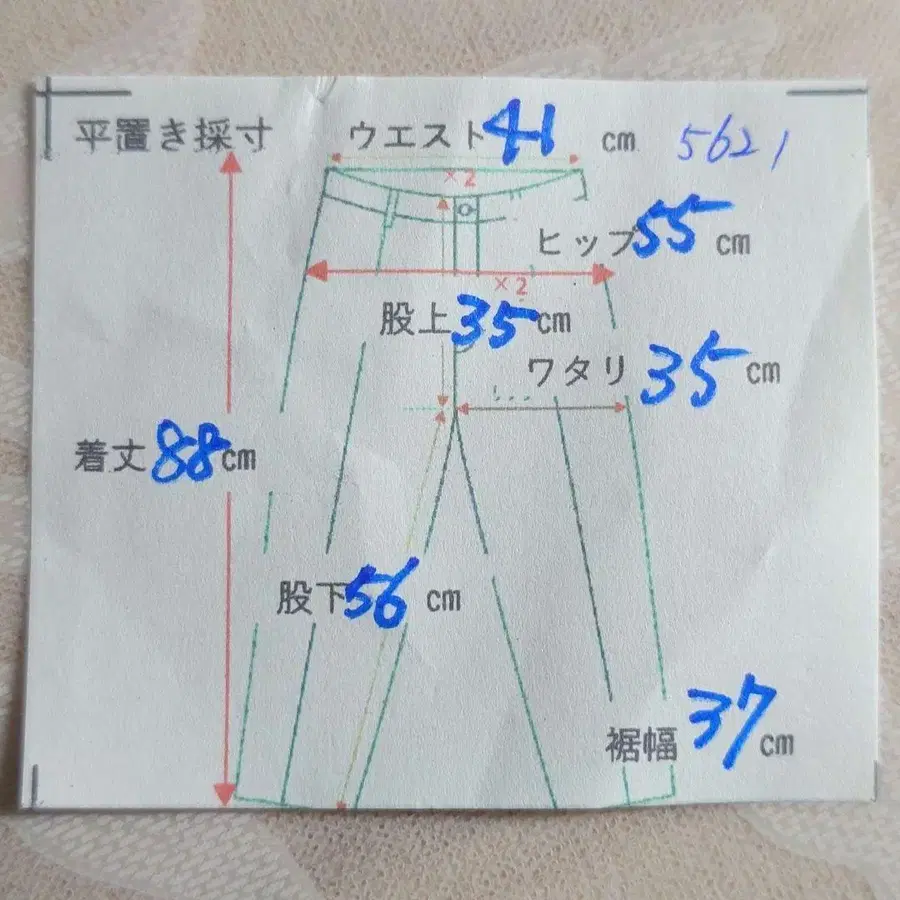 平置き採寸 ウエスト 41 cm 5621
×2
ヒップ 55 cm
×2
股上 35 cm
ワタリ 35 cm
着丈 88 cm
股下 56 cm
裾幅 37 cm